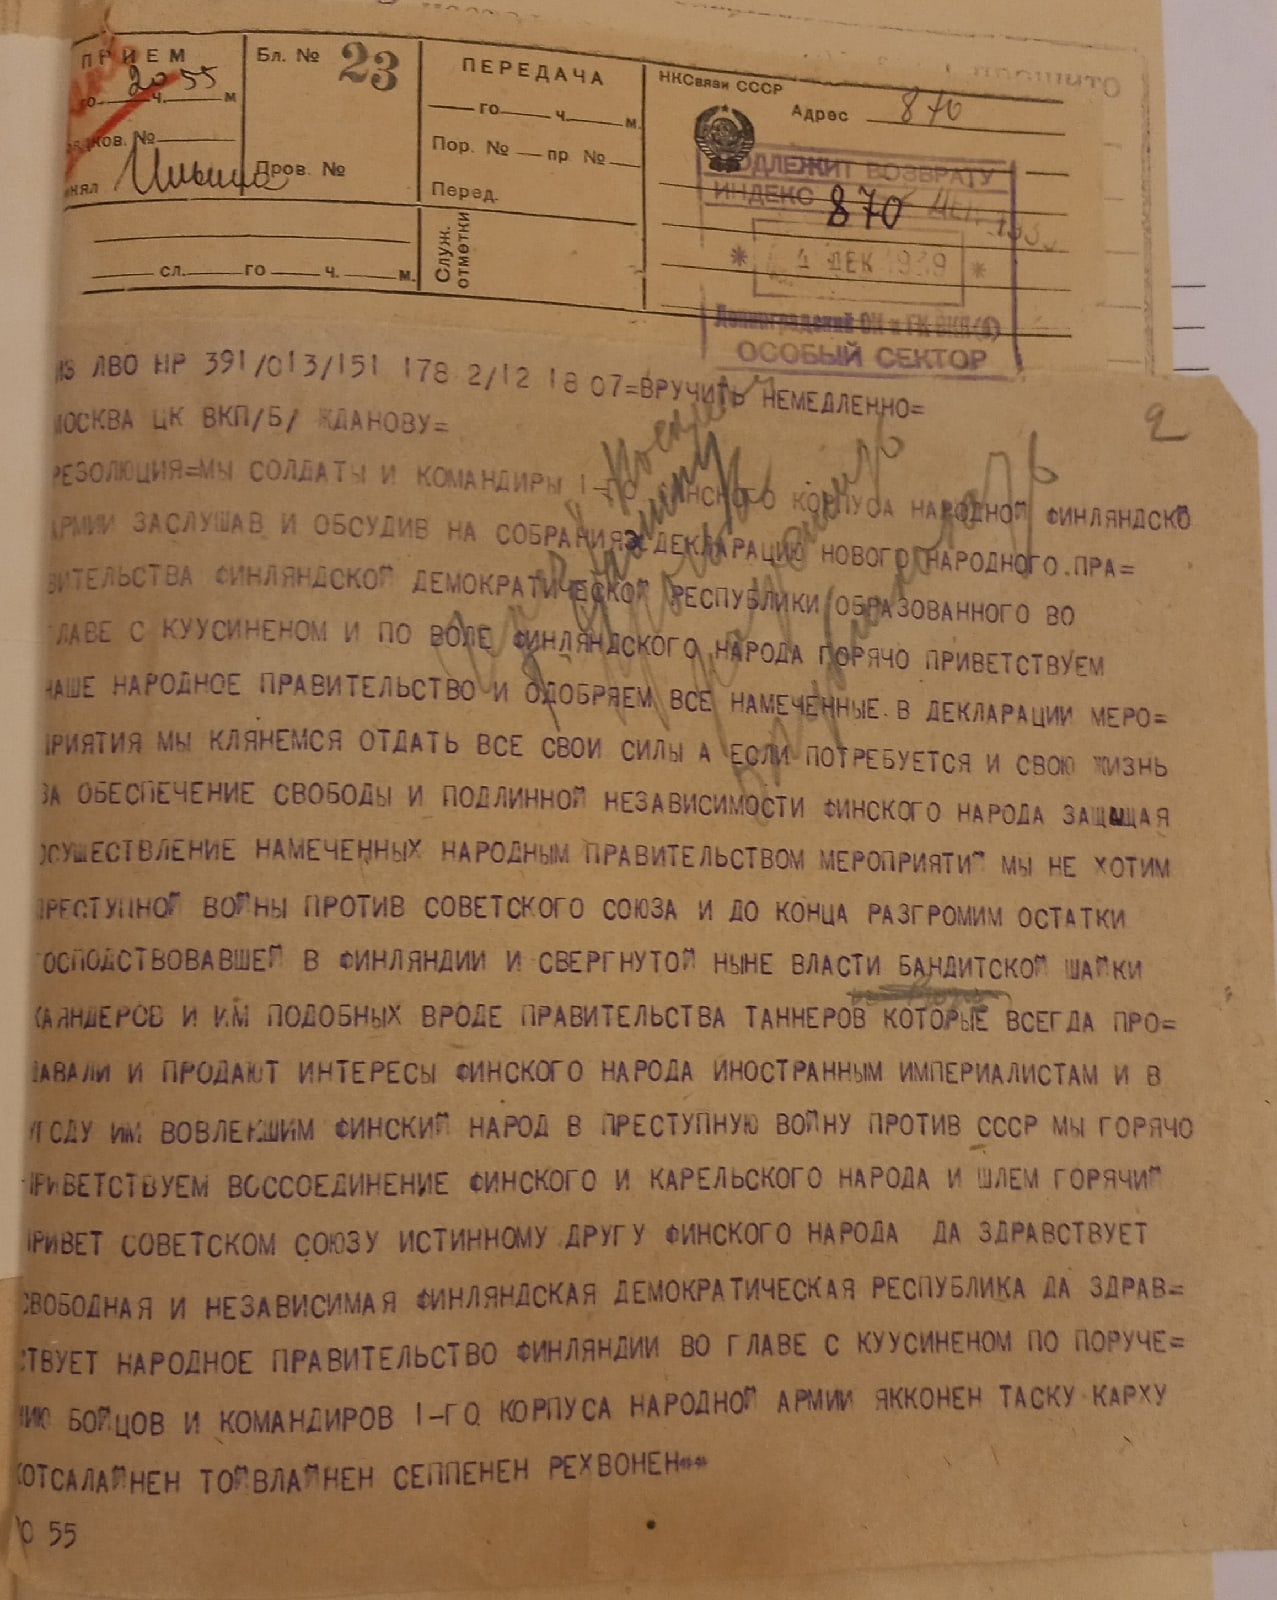 ПРИЕМ
20 55
го ч. м
№
Ильина
Бл. № 23
Пров. №
сл. го ч. м.
ПЕРЕДАЧА
го ч. м.
Пор. № пр. №
Перед.
Служ. отметки
НКСвязи СССР
Адрес 870
ПОДЛЕЖИТ ВОЗВРАТУ
ИНДЕКС 870
* 4 ДЕК 1939 *
Ленинградский ОК и ГК ВКП(б)
ОСОБЫЙ СЕКТОР
2
ИЗ ЛВО НР 391/013/151 178 2/12 18 07=ВРУЧИТЬ НЕМЕДЛЕННО=
МОСКВА ЦК ВКП/Б/ ЖДАНОВУ=
РЕЗОЛЮЦИЯ=МЫ СОЛДАТЫ И КОМАНДИРЫ 1-ГО ФИНСКОГО КОРПУСА НАРОДНОЙ ФИНЛЯНДСКО
АРМИИ ЗАСЛУШАВ И ОБСУДИВ НА СОБРАНИЯХ ДЕКЛАРАЦИЮ НОВОГО НАРОДНОГО.ПРА=
ВИТЕЛЬСТВА ФИНЛЯНДСКОЙ ДЕМОКРАТИЧЕСКОЙ РЕСПУБЛИКИ ОБРАЗОВАННОГО ВО
ГЛАВЕ С КУУСИНЕНОМ И ПО ВОЛЕ ФИНЛЯНДСКОГО НАРОДА ГОРЯЧО ПРИВЕТСТВУЕМ
НАШЕ НАРОДНОЕ ПРАВИТЕЛЬСТВО И ОДОБРЯЕМ ВСЕ НАМЕЧЕННЫЕ. В ДЕКЛАРАЦИИ МЕРО=
ПРИЯТИЯ МЫ КЛЯНЕМСЯ ОТДАТЬ ВСЕ СВОИ СИЛЫ А ЕСЛИ ПОТРЕБУЕТСЯ И СВОЮ ЖИЗНЬ
ЗА ОБЕСПЕЧЕНИЕ СВОБОДЫ И ПОДЛИННОЙ НЕЗАВИСИМОСТИ ФИНСКОГО НАРОДА ЗАЩИЩАЯ
ОСУЩЕСТВЛЕНИЕ НАМЕЧЕННЫХ НАРОДНЫМ ПРАВИТЕЛЬСТВОМ МЕРОПРИЯТИЙ МЫ НЕ ХОТИМ
ПРЕСТУПНОЙ ВОЙНЫ ПРОТИВ СОВЕТСКОГО СОЮЗА И ДО КОНЦА РАЗГРОМИМ ОСТАТКИ
ГОСПОДСТВОВАВШЕЙ В ФИНЛЯНДИИ И СВЕРГНУТОЙ НЫНЕ ВЛАСТИ БАНДИТСКОЙ ШАЙКИ
КАЯНДЕРОВ И ИМ ПОДОБНЫХ ВРОДЕ ПРАВИТЕЛЬСТВА ТАННЕРОВ КОТОРЫЕ ВСЕГДА ПРО=
ДАВАЛИ И ПРОДАЮТ ИНТЕРЕСЫ ФИНСКОГО НАРОДА ИНОСТРАННЫМ ИМПЕРИАЛИСТАМ И В
УГОДУ ИМ ВОВЛЕКШИМ ФИНСКИЙ НАРОД В ПРЕСТУПНУЮ ВОЙНУ ПРОТИВ СССР МЫ ГОРЯЧО
ПРИВЕТСТВУЕМ ВОССОЕДИНЕНИЕ ФИНСКОГО И КАРЕЛЬСКОГО НАРОДА И ШЛЕМ ГОРЯЧИЙ
ПРИВЕТ СОВЕТСКОМ СОЮЗУ ИСТИННОМУ ДРУГУ ФИНСКОГО НАРОДА ДА ЗДРАВСТВУЕТ
СВОБОДНАЯ И НЕЗАВИСИМАЯ ФИНЛЯНДСКАЯ ДЕМОКРАТИЧЕСКАЯ РЕСПУБЛИКА ДА ЗДРАВ=
СТВУЕТ НАРОДНОЕ ПРАВИТЕЛЬСТВО ФИНЛЯНДИИ ВО ГЛАВЕ С КУУСИНЕНОМ ПО ПОРУЧЕ=
НИЮ БОЙЦОВ И КОМАНДИРОВ 1-ГО КОРПУСА НАРОДНОЙ АРМИИ ЯККОНЕН ТАСКУ КАРХУ
КОТСАЛАЙНЕН ТОЙВЛАЙНЕН СЕППЕНЕН РЕХВОНЕН
20 55